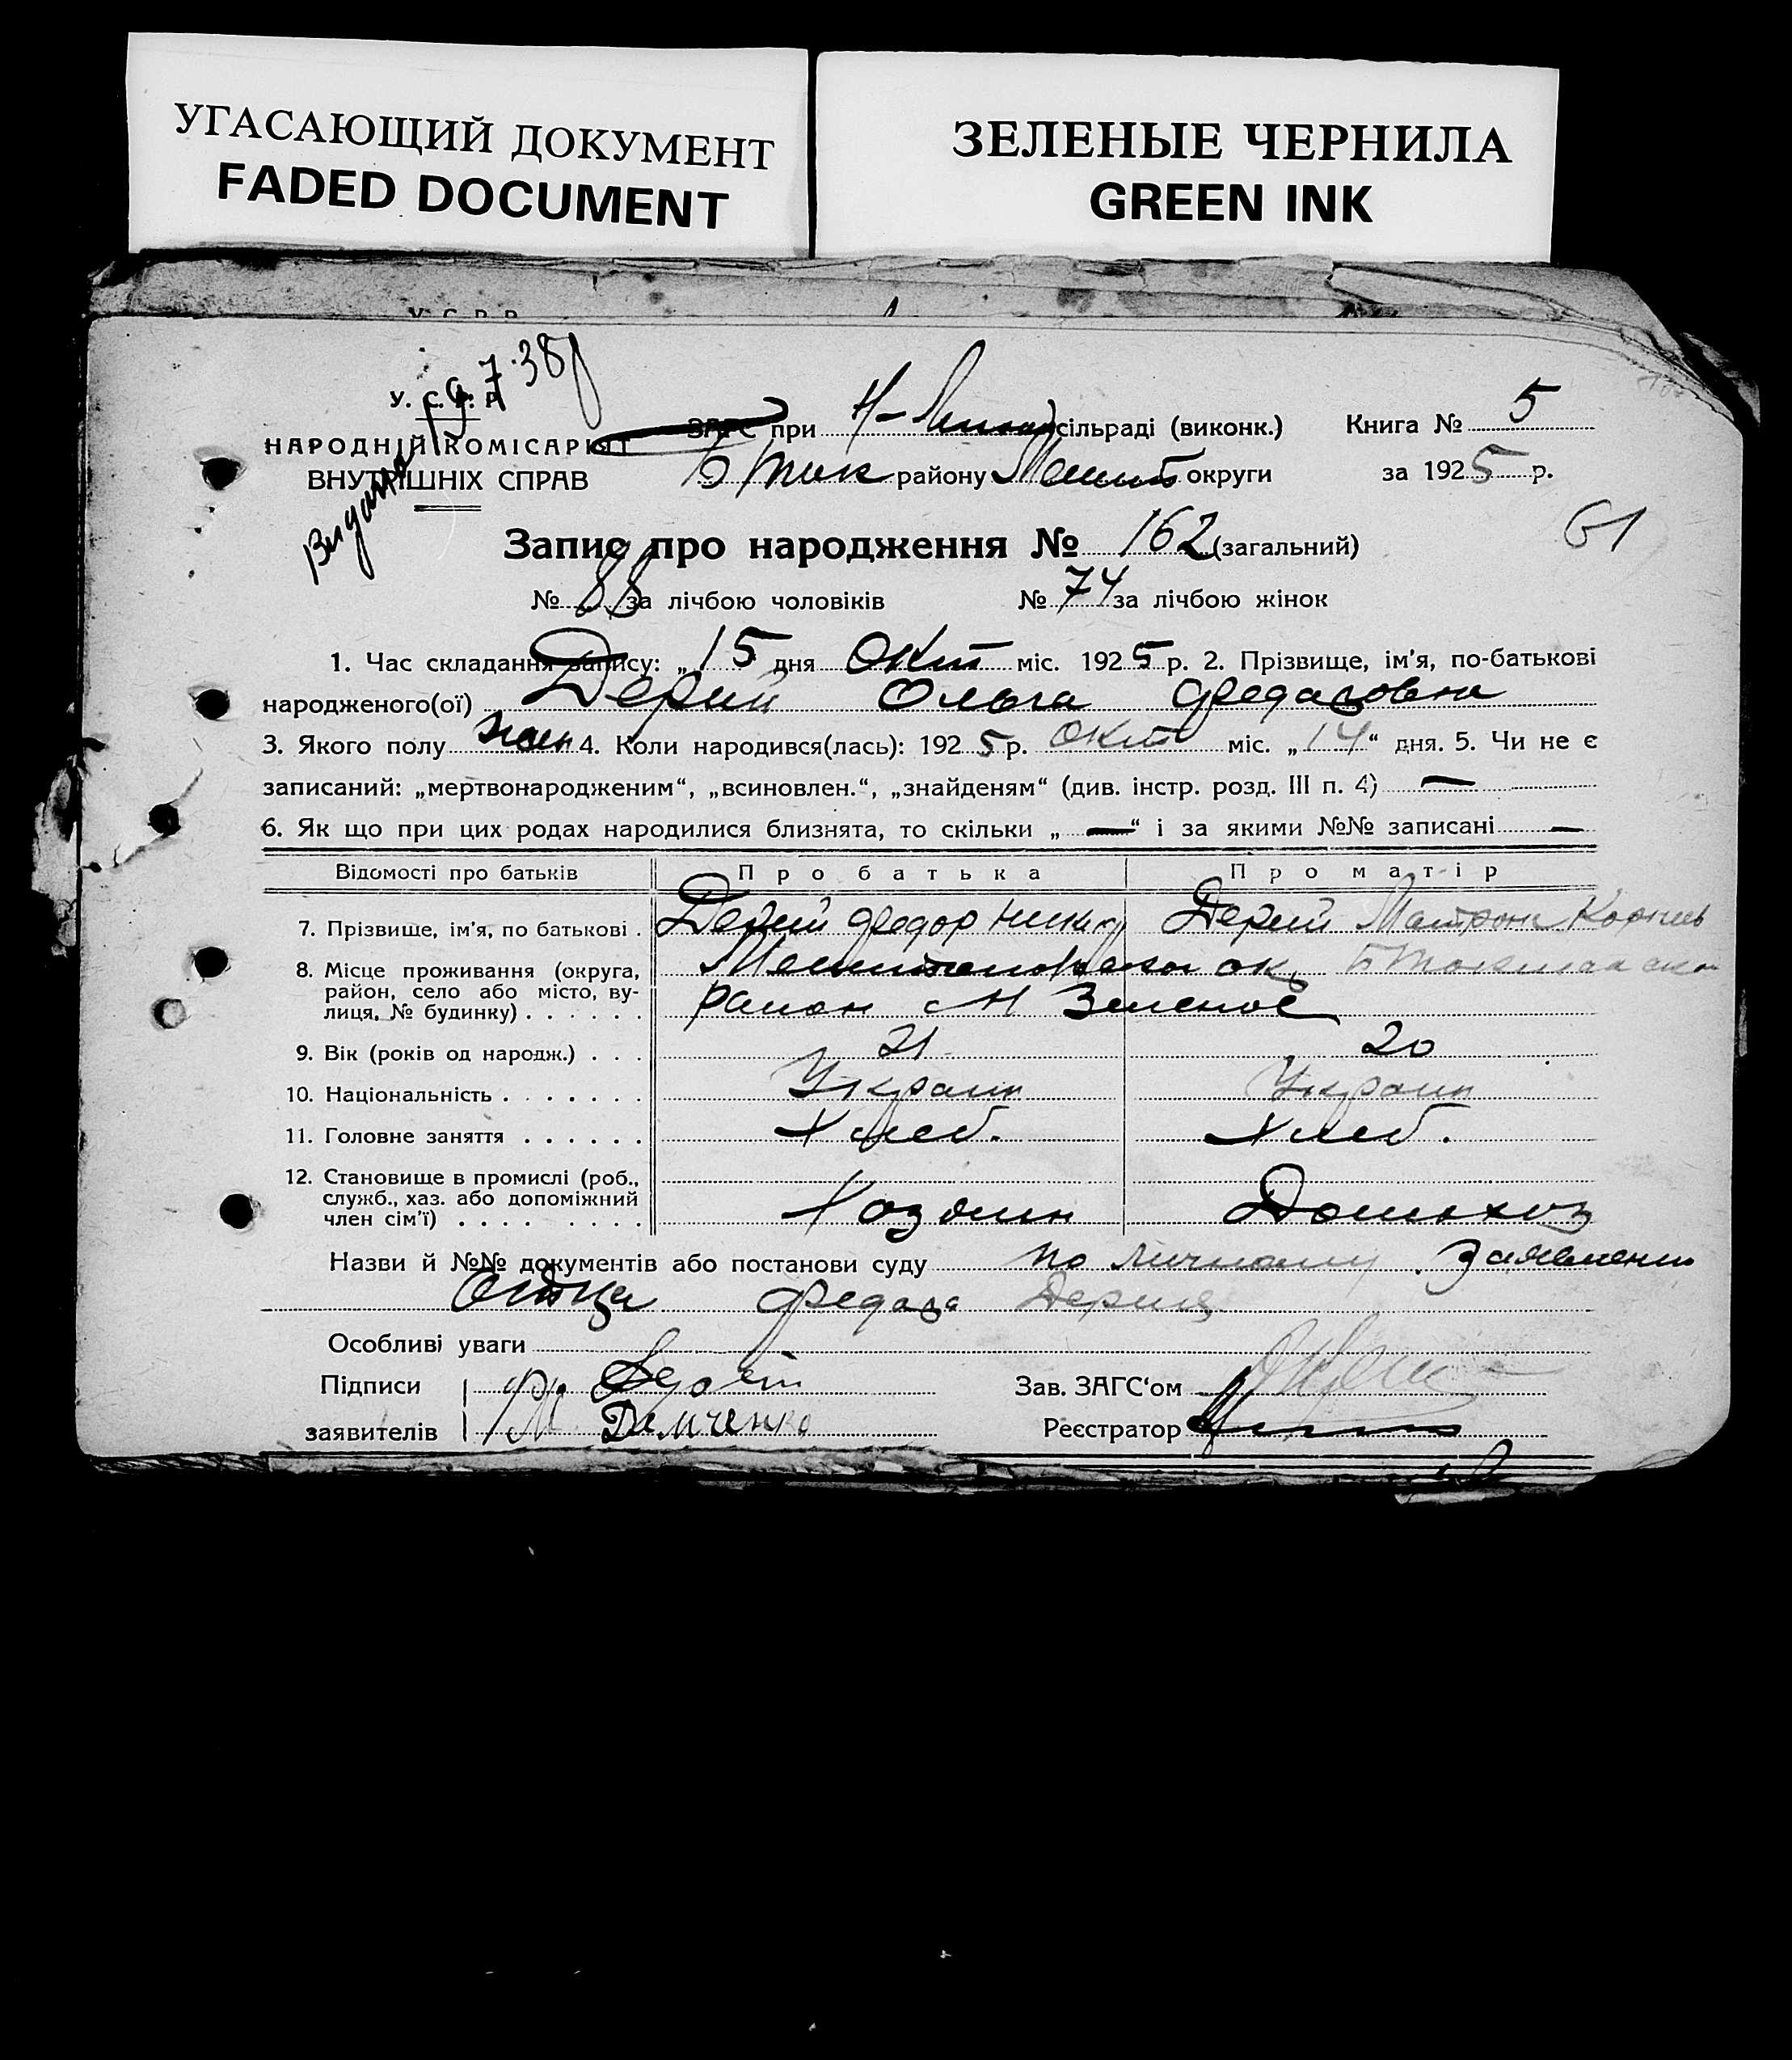 УГАСАЮЩИЙ ДОКУМЕНТ
FADED DOCUMENT
ЗЕЛЕНЫЕ ЧЕРНИЛА
GREEN INK
У. С. Р. Р.
НАРОДНІЙ КОМІСАРІЯТ
ВНУТРІШНІХ СПРАВ
7.38
ЗАГС при сільраді (виконк.) Книга № 5
Б Ток району Мелит округи за 1925 р.
Запис про народження № 162 (загальний)
61
№ 88 за лічбою чоловіків № 74 за лічбою жінок
1. Час складання запису: „15 дня Окт міс. 1925 р. 2. Прізвище, ім'я, по-батькові
народженого(ої) Дерий Ольга Федоровна
3. Якого полу жен 4. Коли народився(лась): 1925 р. Окт міс. „14“ дня. 5. Чи не є
записаний: „мертвонародженим“, „всиновлен.“, „знайденям“ (див. інстр. розд. III п. 4) —
6. Як що при цих родах народилися близнята, то скільки „—“ і за якими №№ записані —
Відомості про батьків Про батька Про матір
7. Прізвище, ім'я, по батькові . Дерий Федор Дерий Матрона Корнеев
8. Місце проживання (округа, район, село або місто, вулиця, № будинку) . . . . . . Мелитопольск ок, Б Токмакск
район с Н Зеленое
9. Вік (років од народж.) . . . 21 20
10. Національність . . . . . . . Украин Украин
11. Головне заняття . . . . . . Хлеб. Хлеб.
12. Становище в промислі (роб., служб., хаз. або допоміжний член сім'ї) . . . . . . . . Хозяин Домохоз
Назви й №№ документів або постанови суду по личному заявлению
Отца Федора Дерия
Особливі уваги
Підписи
заявителів М Демченко
Зав. ЗАГС'ом
Реєстратор